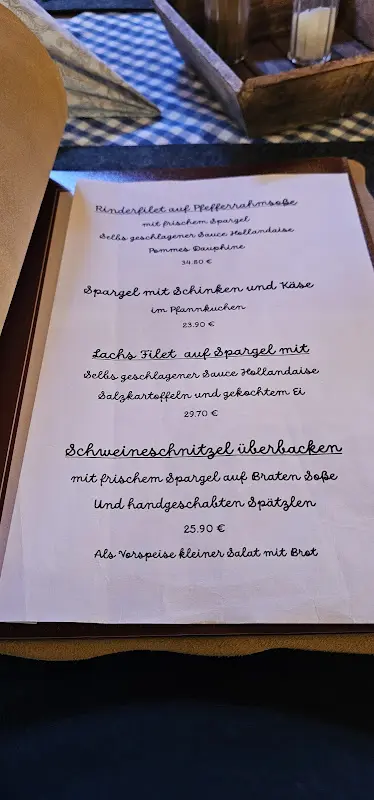 Rinderfilet auf Pfefferrahmsoße
mit frischem Spargel
Selbs geschlagener Sauce Hollandaise
Pommes Dauphine
34.80 €
Spargel mit Schinken und Käse
im Pfannkuchen
23.90 €
Lachs Filet auf Spargel mit
Selbs geschlagener Sauce Hollandaise
Salzkartoffeln und gekochtem Ei
29.70 €
Schweineschnitzel überbacken
mit frischem Spargel auf Braten Soße
Und handgeschabten Spätzlen
25.90 €
Als Vorspeise kleiner Salat mit Brot